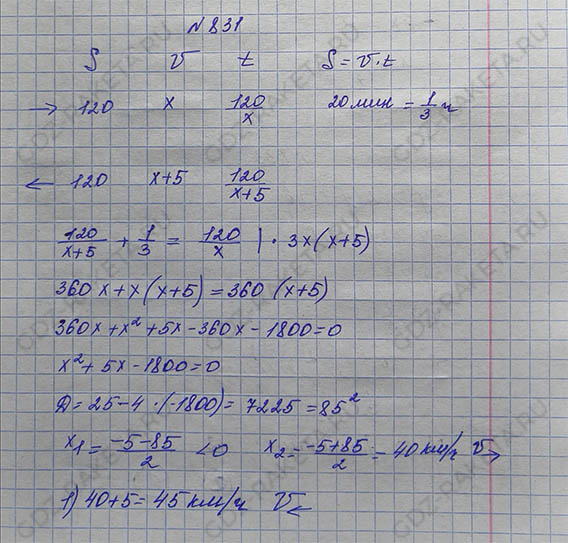 N831
S v t S = v · t
→ 120 x 120/x 20 мин = 1/3 ч
← 120 x+5 120/(x+5)
120/(x+5) + 1/3 = 120/x | · 3x(x+5)
360x + x(x+5) = 360(x+5)
360x + x² + 5x - 360x - 1800 = 0
x² + 5x - 1800 = 0
Д = 25 - 4 · (-1800) = 7225 = 85²
x₁ = (-5-85)/2 < 0 x₂ = (-5+85)/2 = 40 км/ч v→
1) 40 + 5 = 45 км/ч v←
GDZ-RAKETA.RU